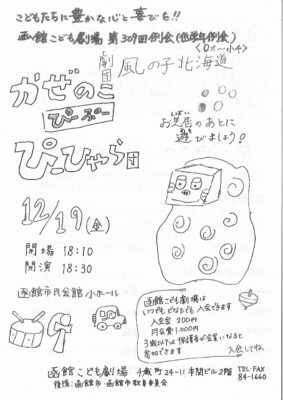 こどもたちに豊かな心と喜びを!!
函館こども劇場 第309回例会(低学年例会)
<0才~小4>
劇団 風の子北海道
かぜのこ
ぴーぷー
ぴーひゃら団
お芝居のあとに
しばい
遊びましょう!
あそ
12/19(金)
開場 18:10
開演 18:30
函館市民会館 小ホール
函館こども劇場は
いつでもどなたでも入会できます
入会金 200円
月会費 1,000円
3歳以下は保護者が会員になると
参加できます。
入会してね。
函館こども劇場 千歳町24-11 本間ビル2階
TEL・FAX
84-1660
後援:函館市・函館市教育委員会